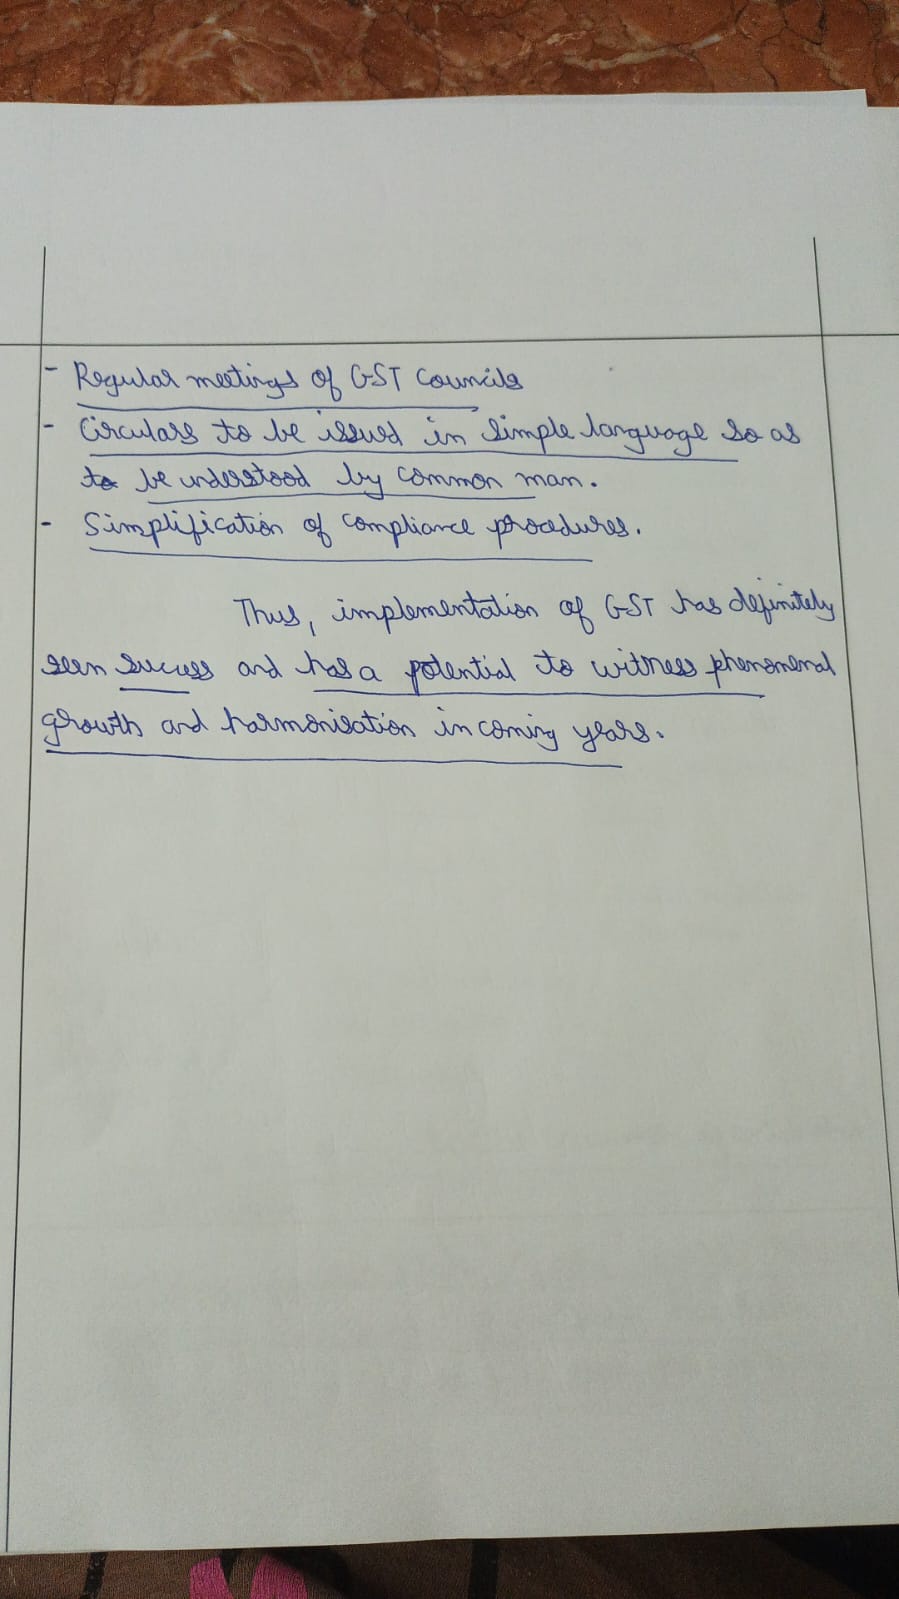 - Regular meetings of GST Councils
- Circulars to be issued in simple language so as
to be understood by common man.
- Simplification of compliance procedures.
Thus, implementation of GST has definitely
seen success and has a potential to witness phenomenal
growth and harmonisation in coming years.